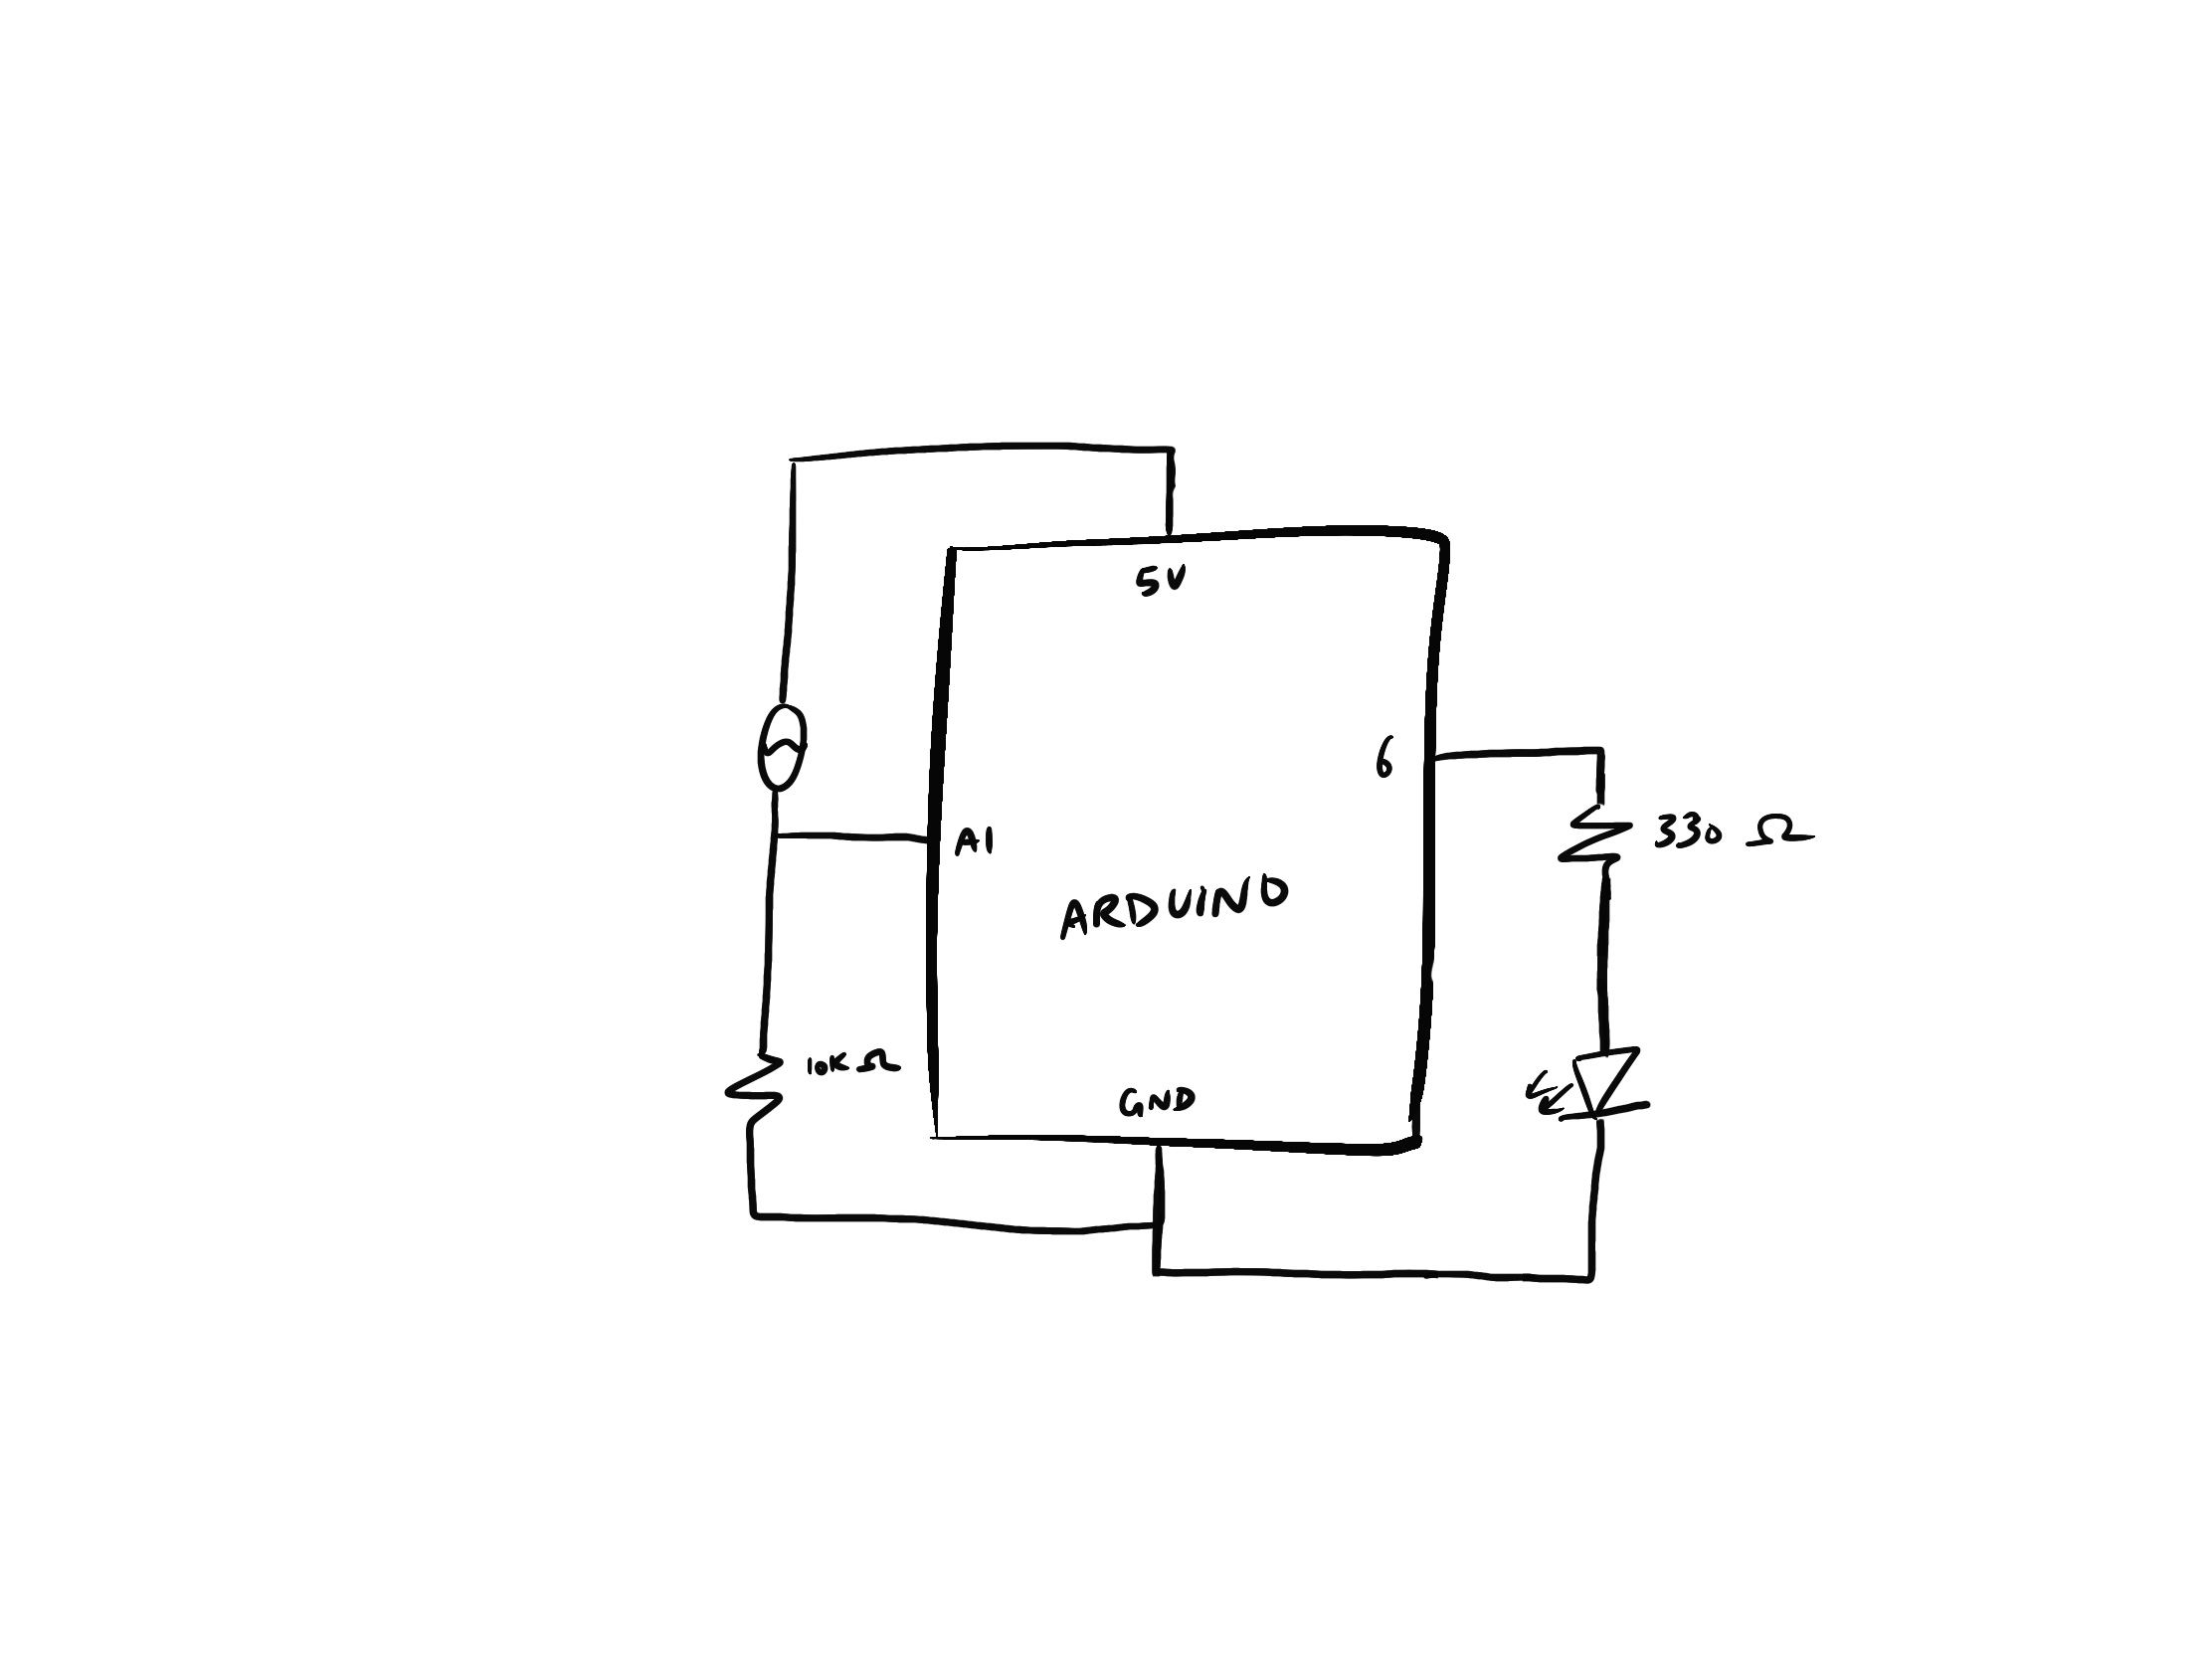 5V
6
330 Ω
A1
ARDUINO
10K Ω
GND